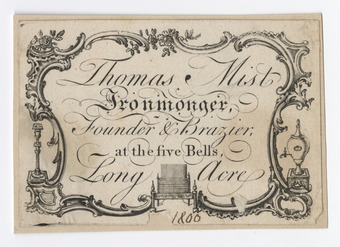 Thomas Mist
Ironmonger,
Founder & Brazier,
at the five Bells,
Long Acre
1806